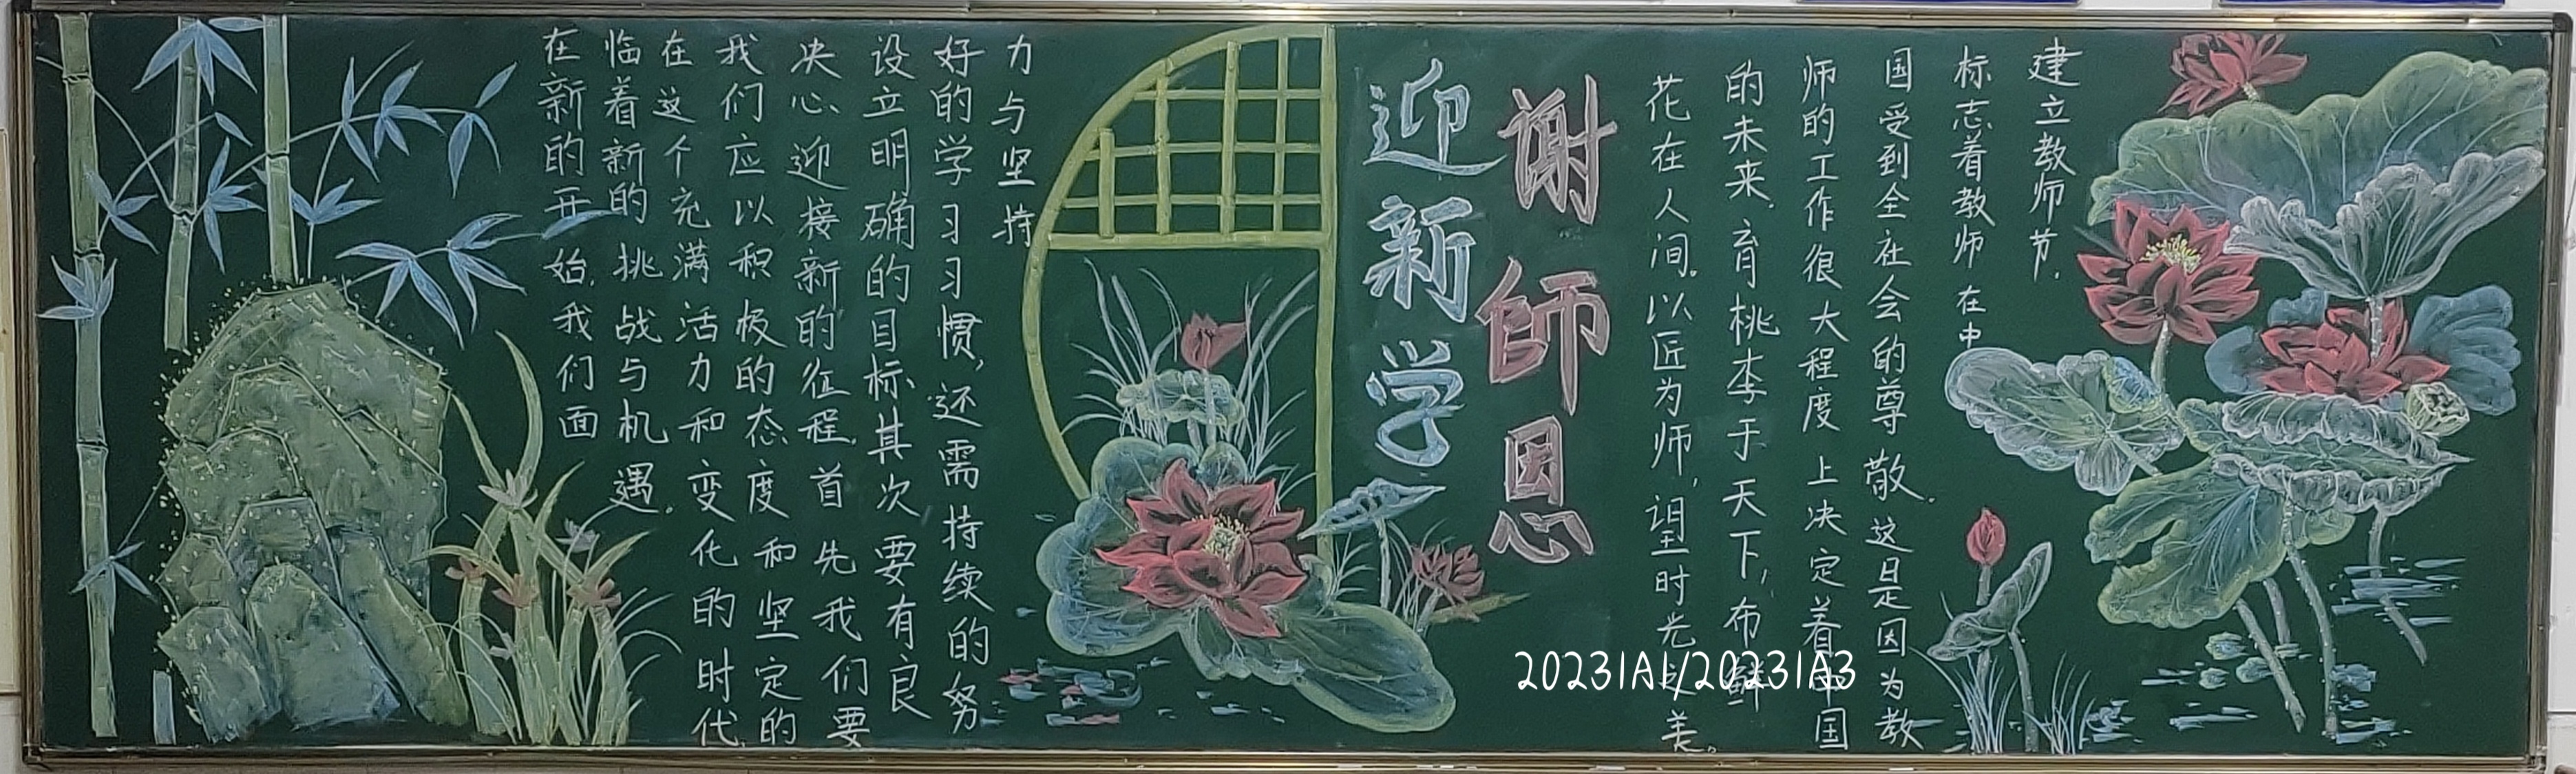 建立教师节.
标志着教师在中
国受到全在会的尊敬.这是因为教
师的工作很大程度上决定着国
的未来.育桃李于天下,布鲜
花在人间。以匠为师,时光之美。
谢師恩
迎新学
在新的开始,我们面
临着新的挑战与机遇.
在这个充满活力和变化的时代,
我们应以积极的态度和坚定的
决心,迎接新的征程.首先我们要
设立明确的目标.其次要有良
好的学习习惯,还需持续的努
力与坚持
20231A1/20231A3